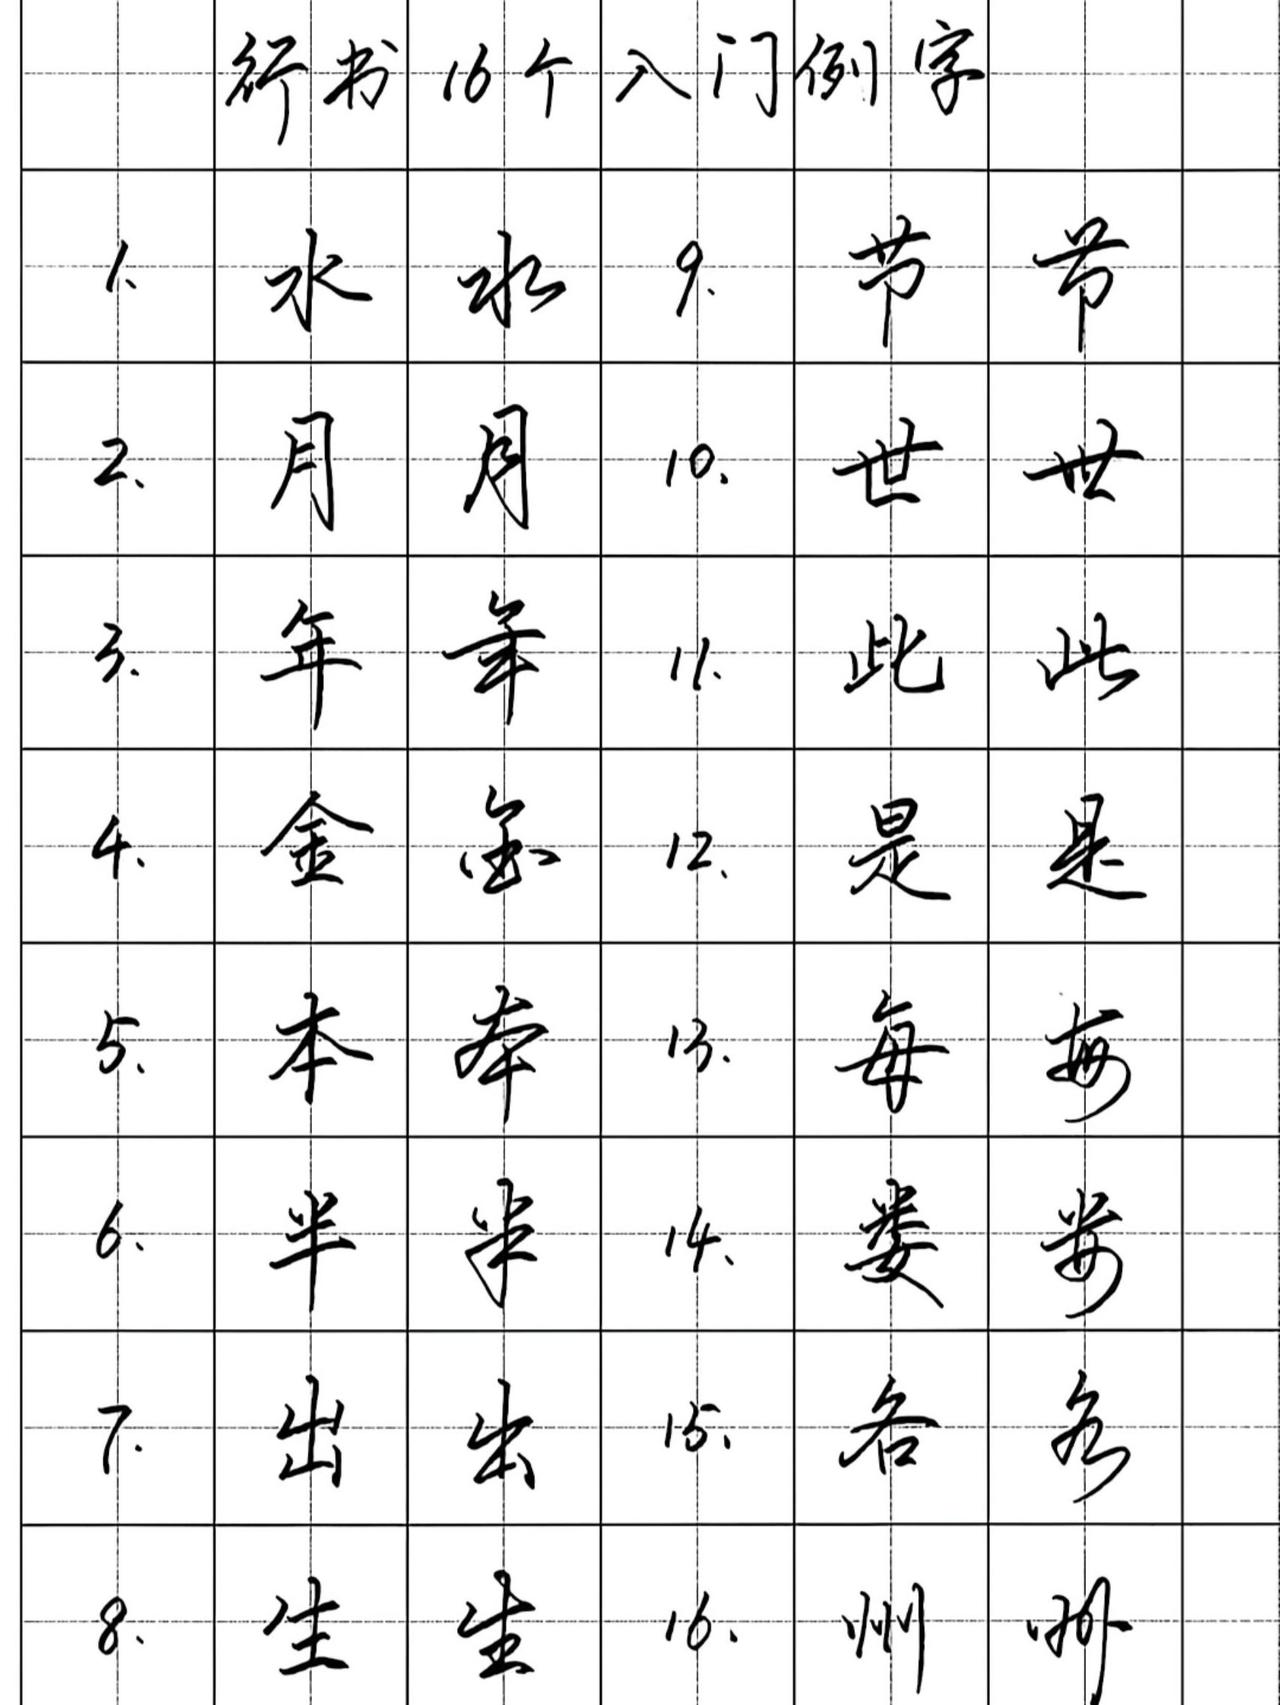 行书16个入门例字
1、 水 水 9. 节 节
2、 月 月 10、 世 世
3、 年 年 11、 此 此
4、 金 金 12、 是 是
5、 本 本 13、 每 每
6、 半 半 14、 娄 娄
7. 出 出 15、 各 各
8、 生 生 16、 州 州